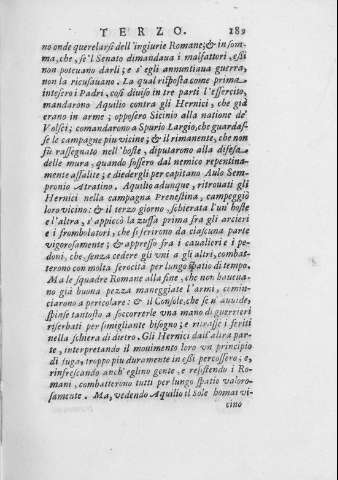 TERZO. 189
no onde querelarsi dell'ingiurie Romane; & in som-
ma, che, se'l Senato dimandaua i malfattori, essi
non poteuano darli; e s'egli annuntiana guerra,
non la ricusauano. La qual risposta come prima
intesero i Padri, così diuiso in tre parti l'essercito,
mandarono Aquilio contra gli Hernici, che già
erano in arme; opposero Sicinio alla natione de'
Volsci; comandarono a Spurio Largio, che guardas-
se le campagne piu vicine; & il rimanente, che non
fù rassegnato nell'hoste, diputarono alla difesa
delle mura, quando fossero dal nemico repentina-
mente assalite; e diedergli per capitano Aulo Sem-
pronio Atratino. Aquilio adunque, ritrouati gli
Hernici nella campagna Prenestina, campeggiò
loro vicino: & il terzo giorno, schierata l'un'hoste
e l'altra, s'appiccò la zuffa prima frà gli arcieri
e i frombolatori, che si ferirono da ciascuna parte
vigorosamente; & appresso fra i caualieri e i pe-
doni, che, senza cedere gli vni a gli altri, combat-
terono con molta ferocità per lungo spatio di tempo.
Ma le squadre Romane alla fine, che non haueua-
no già buona pezza maneggiate l'armi, comin-
ciarono a pericolare: & il Console, che se n'auuide,
spinse tantosto a soccorrerle vna mano di guerrieri
riserbati per simigliante bisogno; e ritrasse i feriti
nella schiera di dietro. Gli Hernici dall'altra par-
te, interpretando il mouimento loro vn principio
di fuga, troppo piu duramente in essi percossero; e,
rinfrescando anch'eglino gente, e resistendo i Ro-
mani, combatterono tutti per lungo spatio valoro-
samente. Ma, vedendo Aquilio il Sole homai vi-
cino